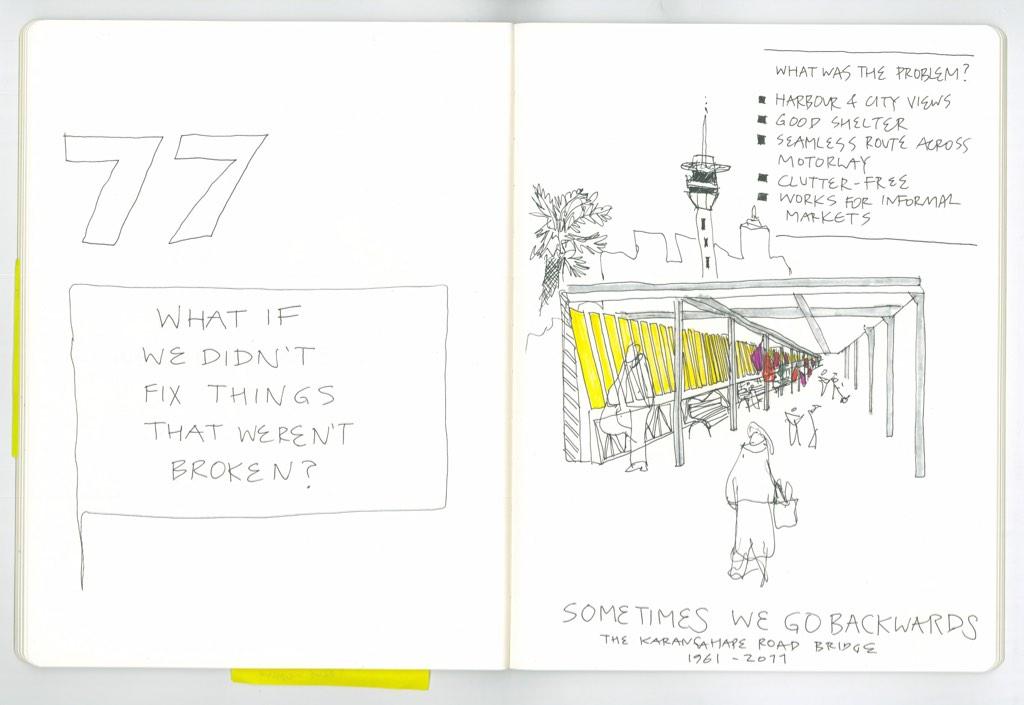 77
WHAT IF
WE DIDN'T
FIX THINGS
THAT WEREN'T
BROKEN?
WHAT WAS THE PROBLEM?
▪ HARBOUR & CITY VIEWS
▪ GOOD SHELTER
▪ SEAMLESS ROUTE ACROSS
MOTORWAY
▪ CLUTTER-FREE
▪ WORKS FOR INFORMAL
MARKETS
SOMETIMES WE GO BACKWARDS
THE KARANGAHAPE ROAD BRIDGE
1961 - 2017